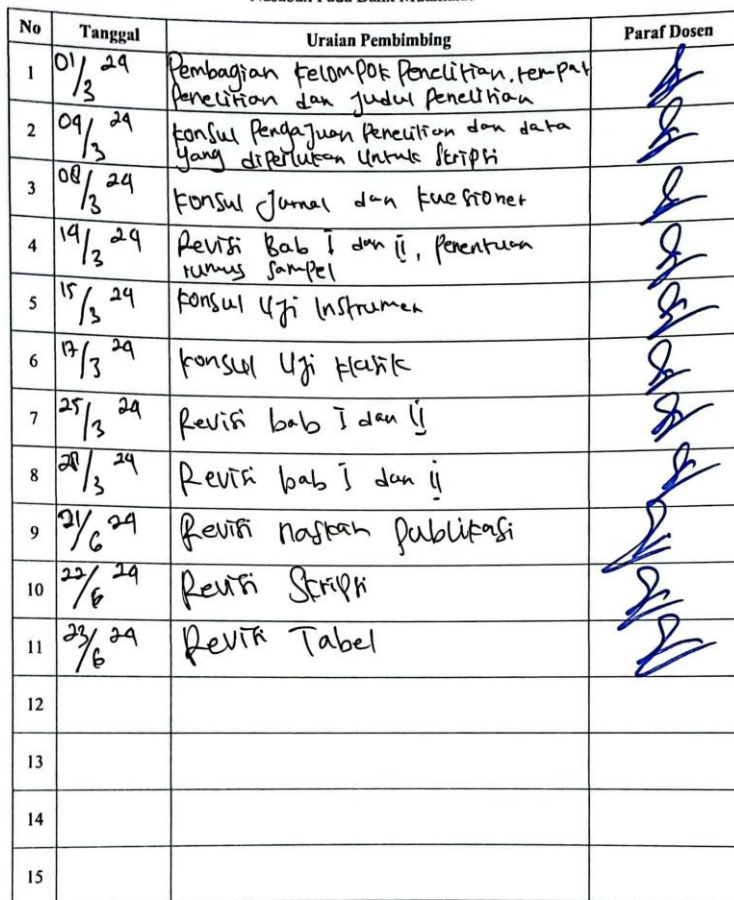 No Tanggal Uraian Pembimbing Paraf Dosen
1 01/3 24 Pembagian kelompok Penelitian, tempat
Penelitian dan Judul Penelitian
2 04/3 24 konsul Pengajuan Penelitian dan data
yang diperlukan untuk Skripsi
3 08/3 24 konsul Jurnal dan kuesioner
4 14/3 24 Revisi Bab I dan ii, Penentuan
rumus sampel
5 15/3 24 konsul Uji Instrumen
6 17/3 24 konsul Uji klasik
7 25/3 24 Revisi bab I dan ii
8 28/3 24 Revisi bab I dan ii
9 21/6 24 Revisi naskah Publikasi
10 22/6 24 Revisi Skripsi
11 23/6 24 Revisi Tabel
12
13
14
15